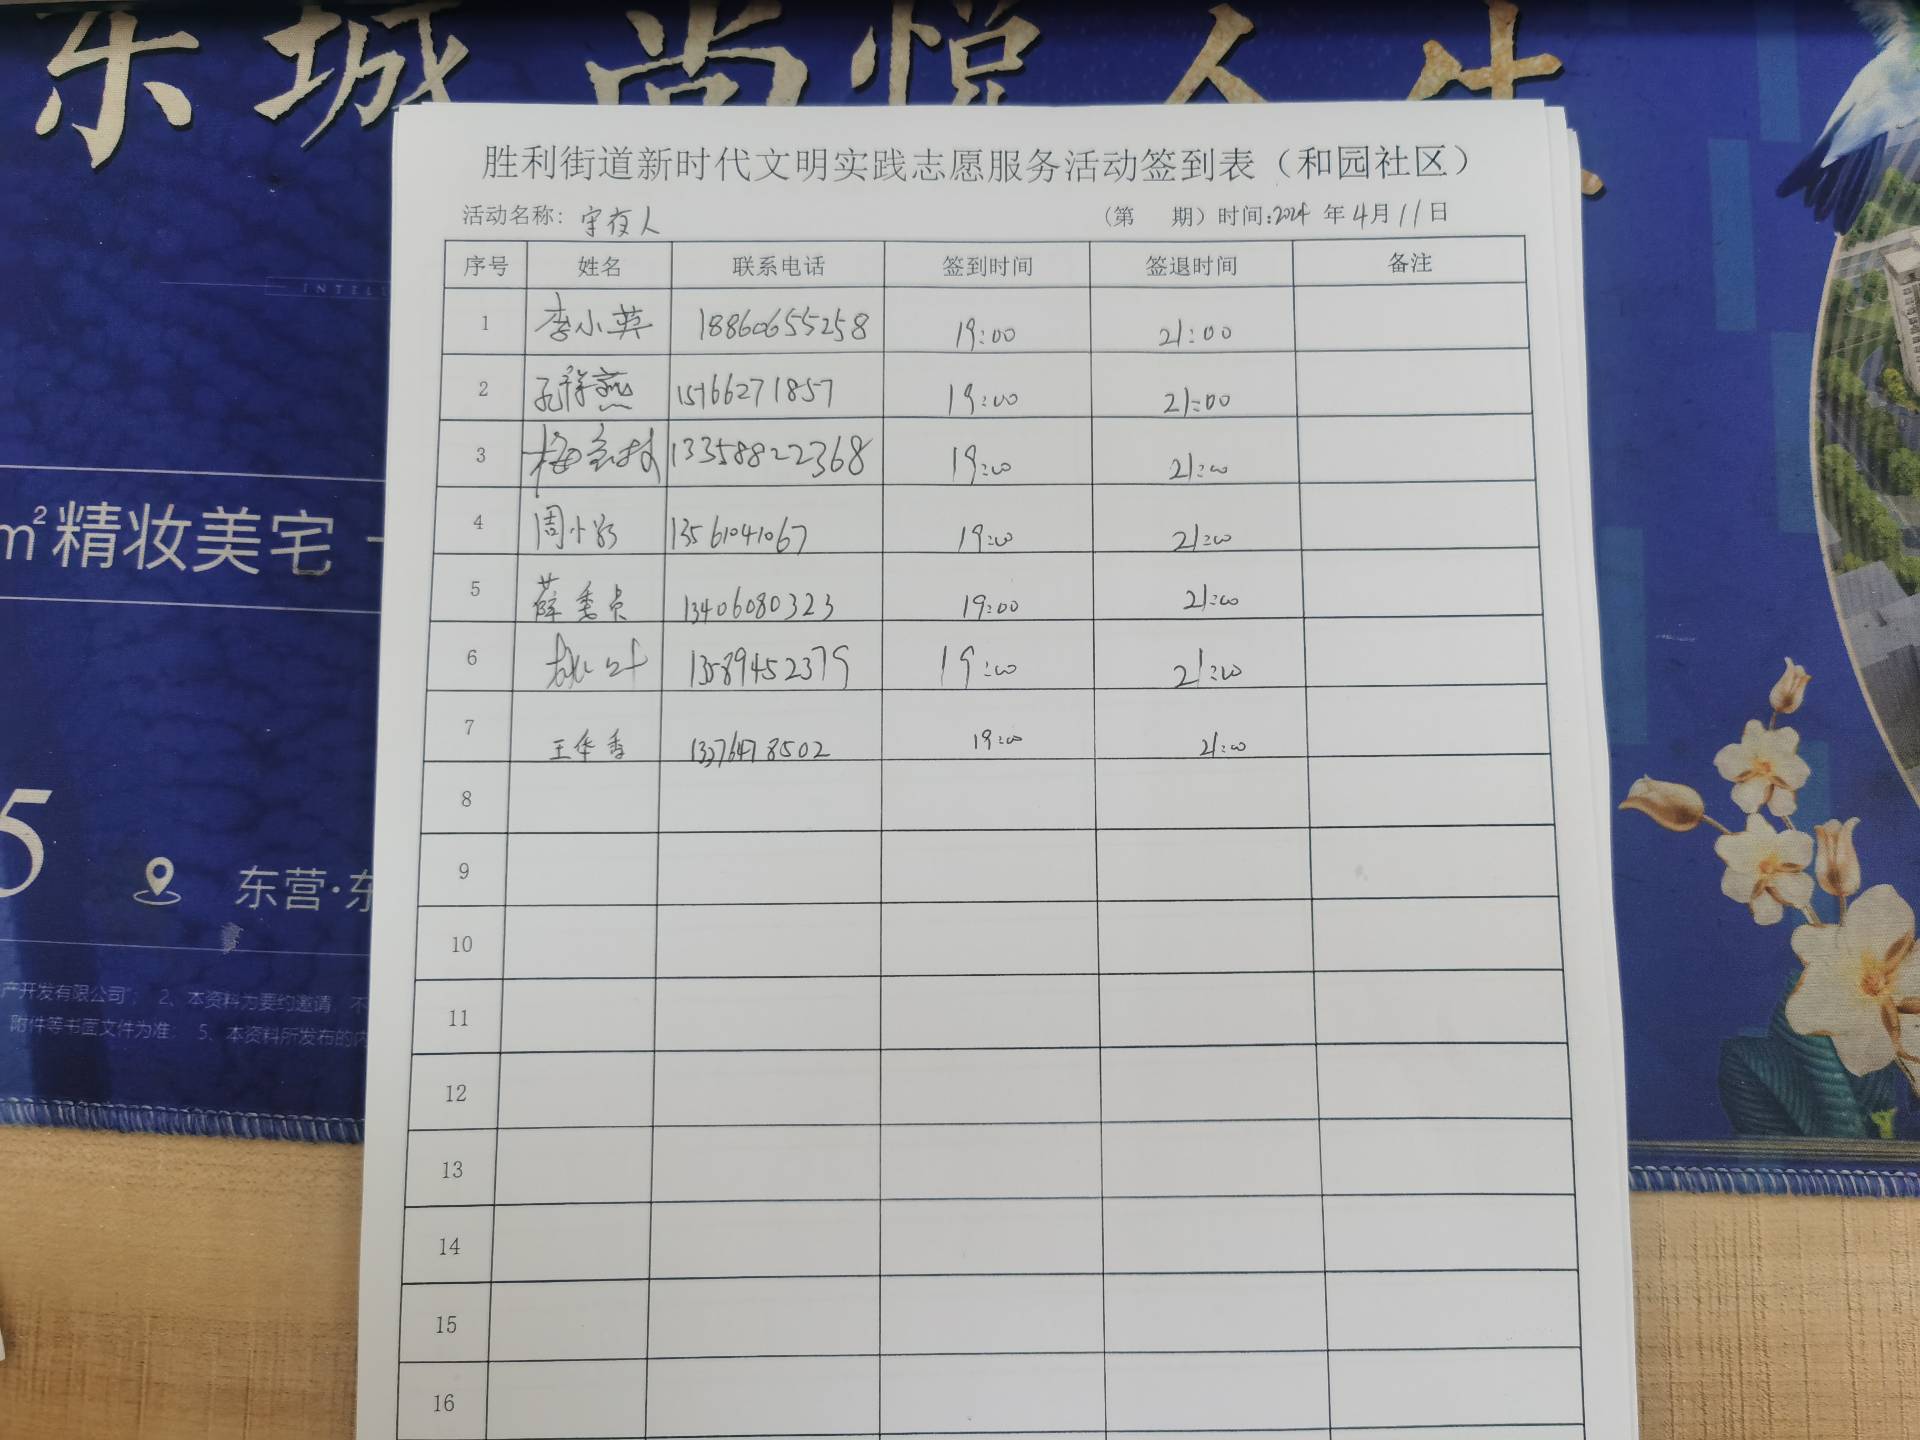 东城 尚悦人生
INTEL
m²精妆美宅
5
东营·东
产开发有限公司"; 2、本资料为要约邀请 不
附件等书面文件为准; 5、本资料所发布的内
胜利街道新时代文明实践志愿服务活动签到表（和园社区）
活动名称：守夜人 （第 期）时间：2024 年 4月 11日
序号 姓名 联系电话 签到时间 签退时间 备注
1 李小英 18860655258 19:00 21:00
2 孔祥燕 15166271857 19:00 21:00
3 梅 13358822368 19:00 21:00
4 周小 13561041067 19:00 21:00
5 薛秀贞 13406080323 19:00 21:00
6 姚叶 13589452379 19:00 21:00
7 王华香 13276478502 19:00 21:00
8
9
10
11
12
13
14
15
16